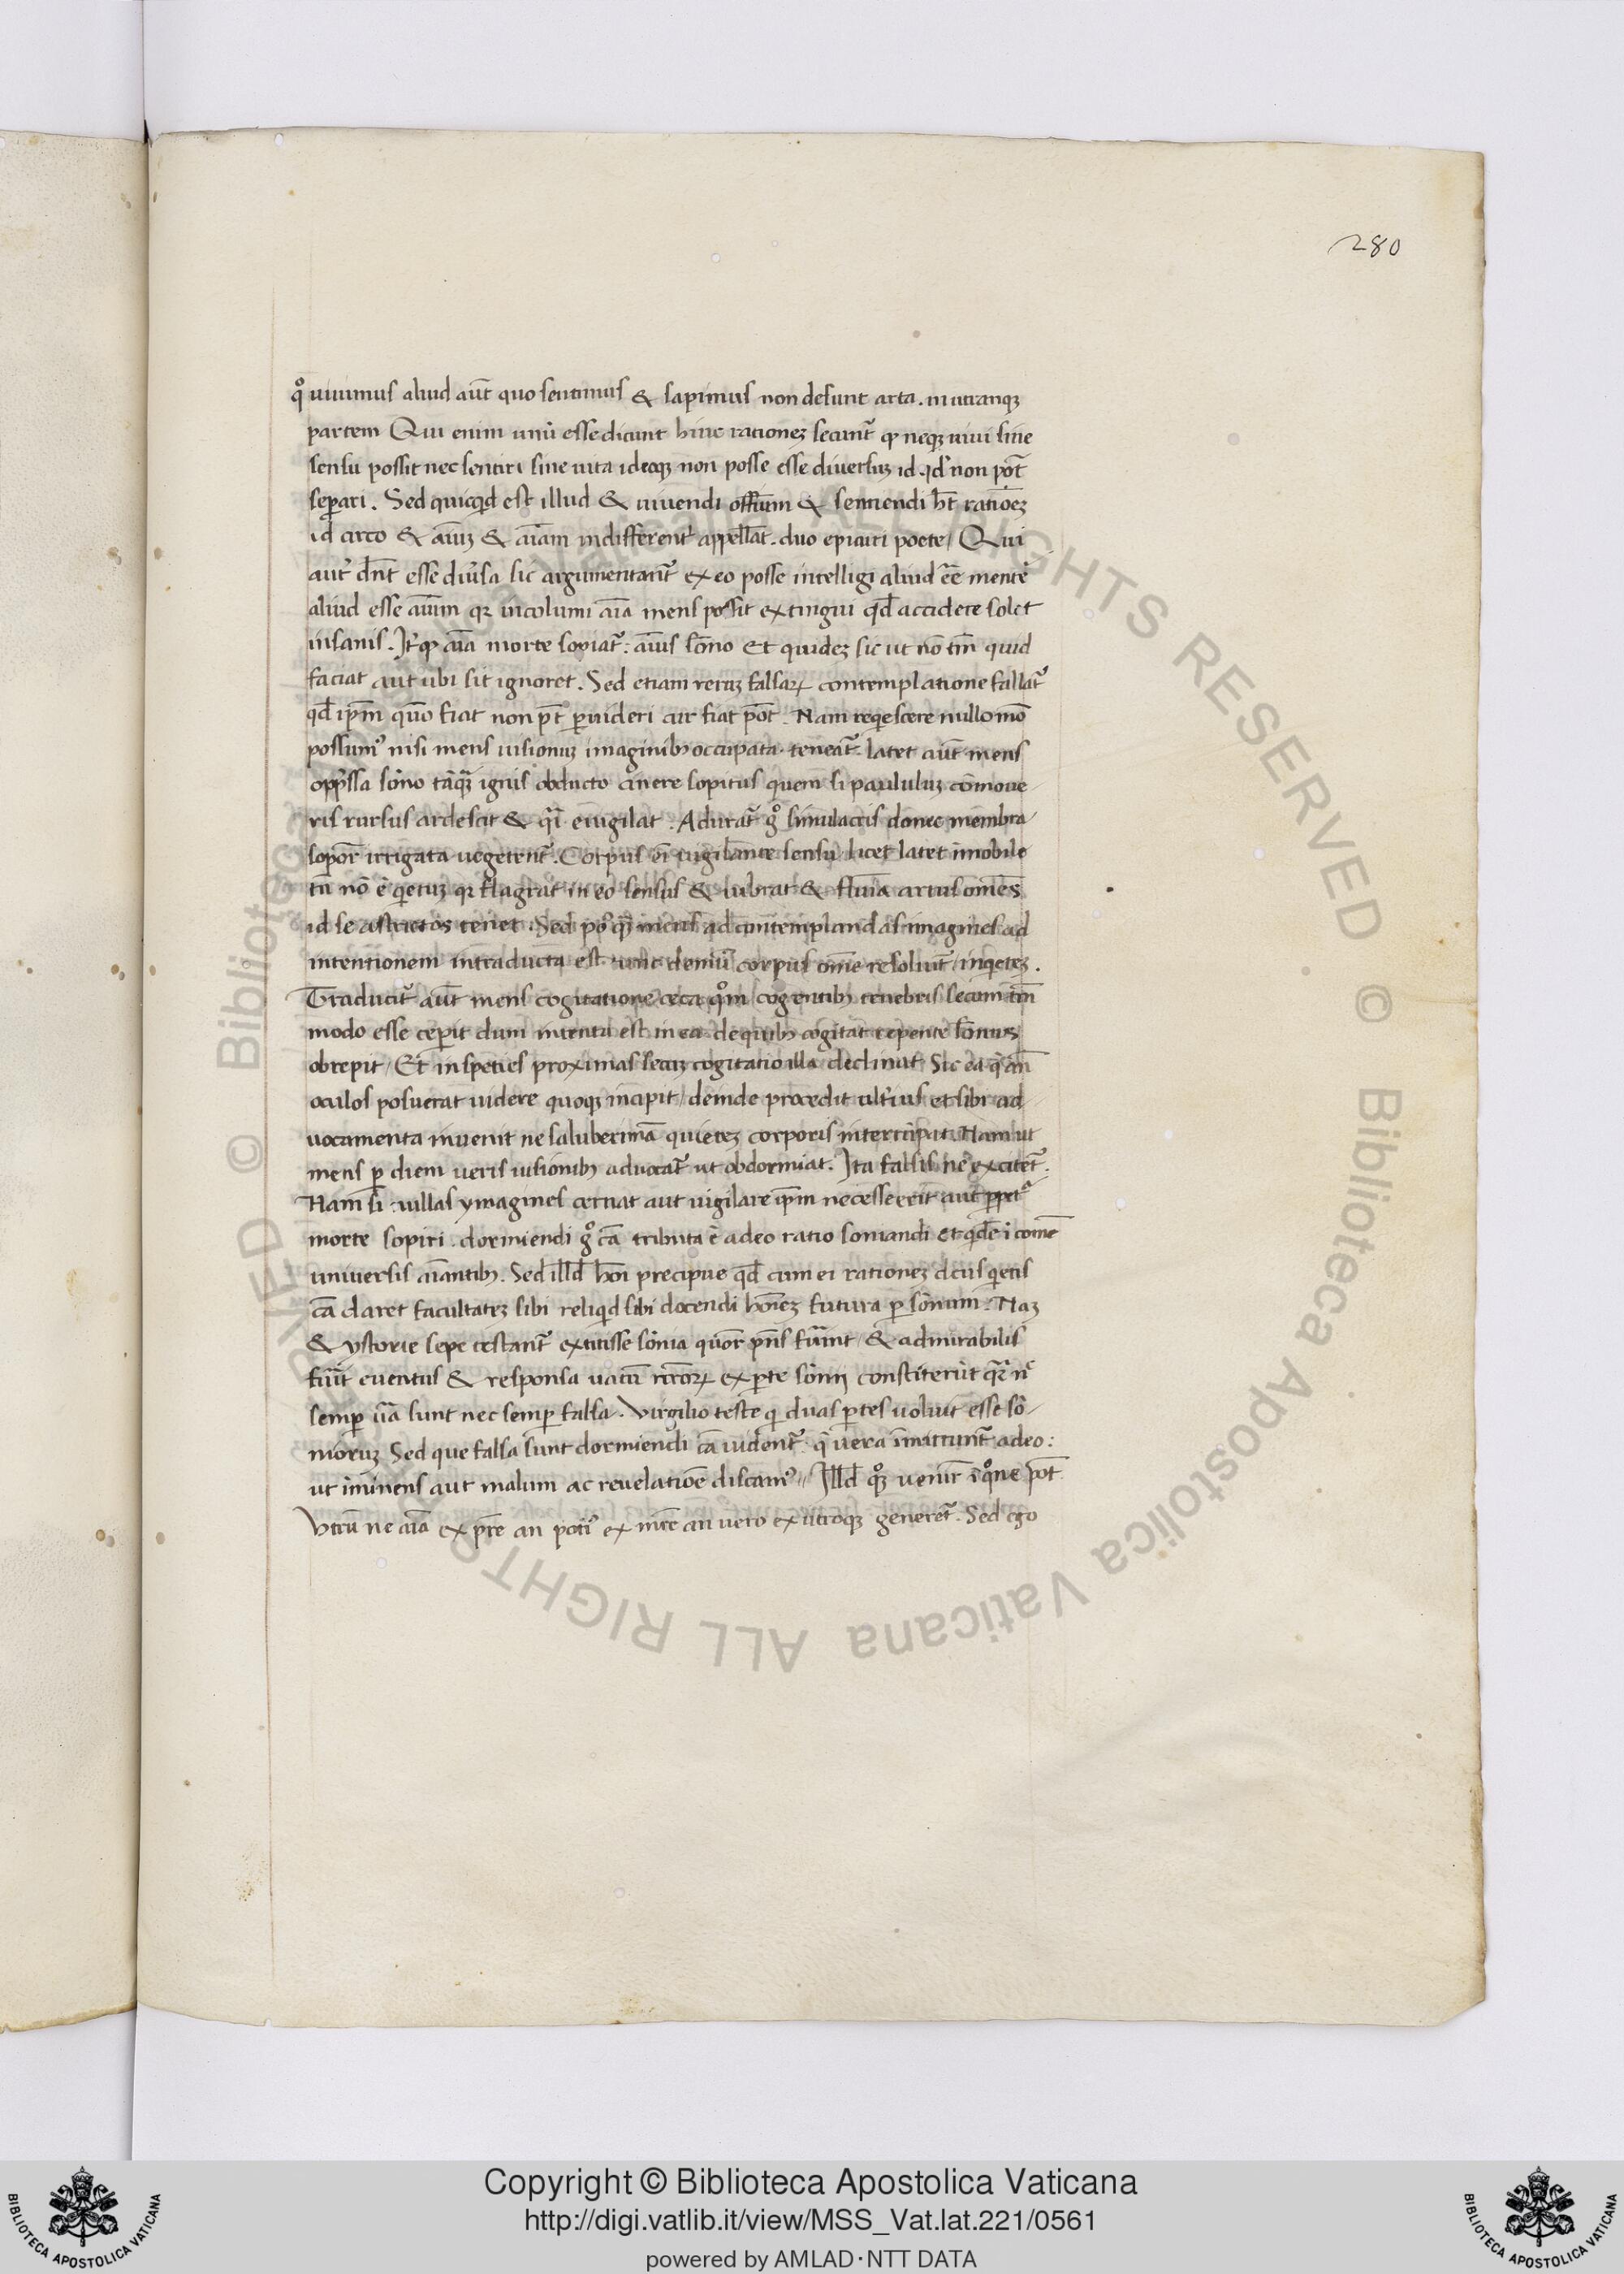 280
qͦ uiuimus aliud aūt quo sentimus & sapimus non desunt arta. in utranqꝫ
partem Qui enim unū esse dicunt hinc rationeꝫ secunt᷒ ꝙ neqꝫ uiui sine
sensu possit nec sentiri sine uita ideoqꝫ non posse esse diuersuꝫ id qd̓ non pōt
sep̱ari. Sed quicqͥd est illud & uiuendi offitium & sentiendi h̄t ratiōeꝫ
id circo & aīuꝫ & aīam indifferent᷒ appell̄at. duo epicuri poete / Qui
aut᷒ dn̄t esse diu᷒sa sic argumentant᷒ ex eo posse intelligi aliud ēē mente
aliud esse aīum qꝛ incolumi aīa mens possit extingui qd̄ accidere solet
insanis. It᷒ ꝙ aīa morte sopiat᷒: aīus sōno Et quideꝫ sic ut nō tm̄ quid
faciat aut ubi sit ignoret. Sed etiam reruꝫ falsaꝝ contemplatione fallat᷒
qd̄ ip̄m quō fiat non p̄t ꝑuideri cur fiat pōt. Nam reqͥescere nullo mō
possum᷒ nisi mens uisionuꝫ imaginibꝫ occupata teneat᷒. latet aūt mens
opp̄ssa sōno tāqͣꝫ ignis obducto cinere sopitus quem si paululuꝫ cōmoue
ris rursus ardescit & qͣi euigilat. Aduocat᷒ gͦ simulacris donec membra
sopor̄ irrigata uegetent᷒. Corpus n̄ uigilante sensu licet latet īmobile
tn̄ nō ē qͥetuꝫ qꝛ flagrat in eo sensus & uibrat & fluīa artus omēs
id se astrictos tenet. Sed pͦ qͣꝫ mens ad contemplandas imagines ad
intentionem intraducta est tunc demū corpus ōme resoluit᷒ inqͥeteꝫ.
Traducit᷒ aūt mens cogitatione ceca qͦm cogentibꝫ tenebris secum tm̄
modo esse cep̱it dum intenta est in ea de quibꝫ cogitat repente sōnus
obrepit / Et in speties proximas secuꝫ cogitatio illa declinat Sic ea q̄ an̄
oculos posuerat uidere quoqꝫ incipit / deinde procedit ult᷒ius et sibi ad
uocamenta inuenit ne saluberrimā quieteꝫ corporis intercipat. Nam ut
mens ꝑ diem ueris uisionibꝫ aduocat᷒ ut obdormiat. Ita falsis ne excitet᷒.
Nam si nullas ymagines cernat aut uigilare ip̄m necesse erit aut ꝑpetͣ
morte sopiri. dormiendi gͦ cā tributa ē adeo ratio somandi et qͥdē ī cōme
uniuersis aīantibꝫ. Sed ill̄d hōi precipue qd̄ cum ei rationeꝫ deus qͥetis
cā daret facultateꝫ sibi reliqͥd sibi docendi hōieꝫ futura ꝑ sōnum. Naꝫ
& ystorie sepe testant᷒ extitisse sōnia quor̄ p̄ns fuīint / & admirabilis
fuīit euentus & responsa uatū nr̄oꝝ ex ꝑte sōnij constiterūt qͣꝛ nͨ
semꝑ ūa sunt nec semꝑ falsa. Virgilio teste qͥ duas ꝑtes uoluit esse sō
nioruꝫ Sed que falsa sunt dormiendi cā uident᷒. q̄ uera īmittunt᷒ adeo:
ut iminens aut malum ac reuelatiōe discam᷒ // Ill̄d qͦqꝫ uenir̄ ī qͦne pōt
Vtrū ne aīa ex pr̄e an poti᷒ ex mr̄e an uero ex utroqꝫ generet᷒. Sed ego
© Biblioteca Apostolica Vaticana ALL RIGHTS RESERVED
Copyright © Biblioteca Apostolica Vaticana
http://digi.vatlib.it/view/MSS_Vat.lat.221/0561
powered by AMLAD·NTT DATA
BIBLIOTECA APOSTOLICA VATICANA
BIBLIOTECA APOSTOLICA VATICANA